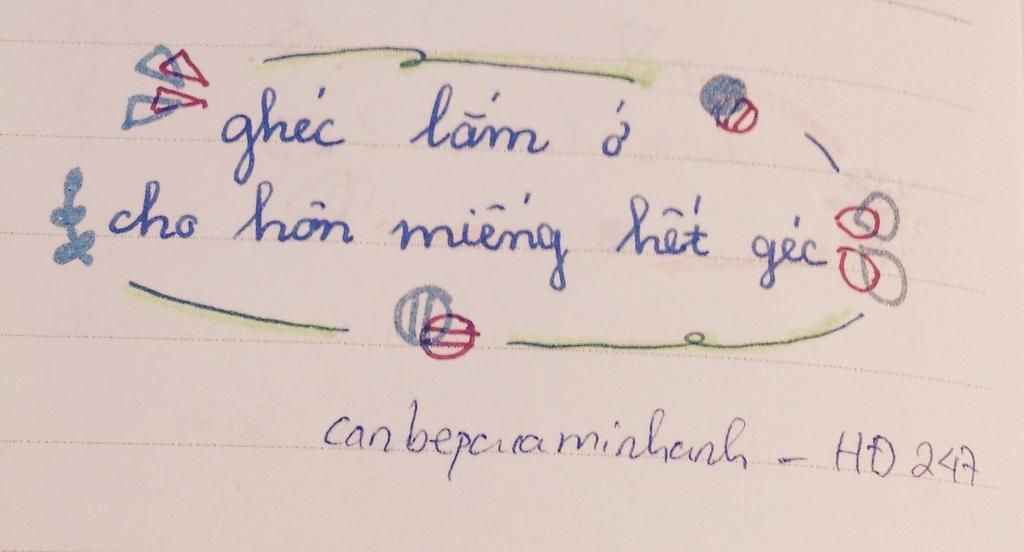 ghéc lắm ở
cho hôn miếng hết géc
canbepcuaminhanh - HĐ 247